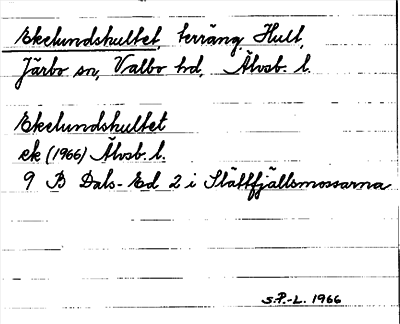 Ekelundshultet, terräng, Hult,
Järbo sn, Valbo hd, Älvsb. l.
Ekelundshultet
ek (1966) Älvsb. l.
9 B Dals-Ed 2 i Slättfjällsmossarna
S.P.-L. 1966